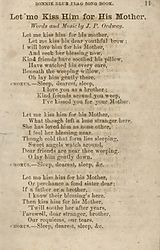 BONNIE BLUE FLAG SONG BOOK. 11
Let me Kiss Him for His Mother.
Words and Music by J. P. Ordway.
Let me kiss him for his mother,
Let me kiss his dear youthful brow;
I will love him for his mother,
And seek her blessing now.
Kind friends have soothed his pillow,
Have watched his every care,
Beneath the weeping willow,
Oh lay him gently there.
CHORUS.—Sleep, dearest, sleep;
I love you as a brother;
Kind friends around you weep,
I've kissed you for your Mother.
Let me kiss him for his Mother,
What though left a lone stranger here,
She has loved him as none other,
I feel her blessing near.
Though cold that form lies sleeping,
Sweet angels watch around,
Dear friends are near thee weeping,
O lay him gently down.
CHORUS.—Sleep, dearest, sleep, &c.
Let me kiss him for his Mother,
Or perchance a fond sister dear;
If a father or a brother,
I know their blessing's here.
Then kiss him for his Mother,
'Twill soothe her after years,
Farewell, dear stranger, brother,
Our requiems, our tears.
CHORUS.—Sleep, dearest, sleep, &c.